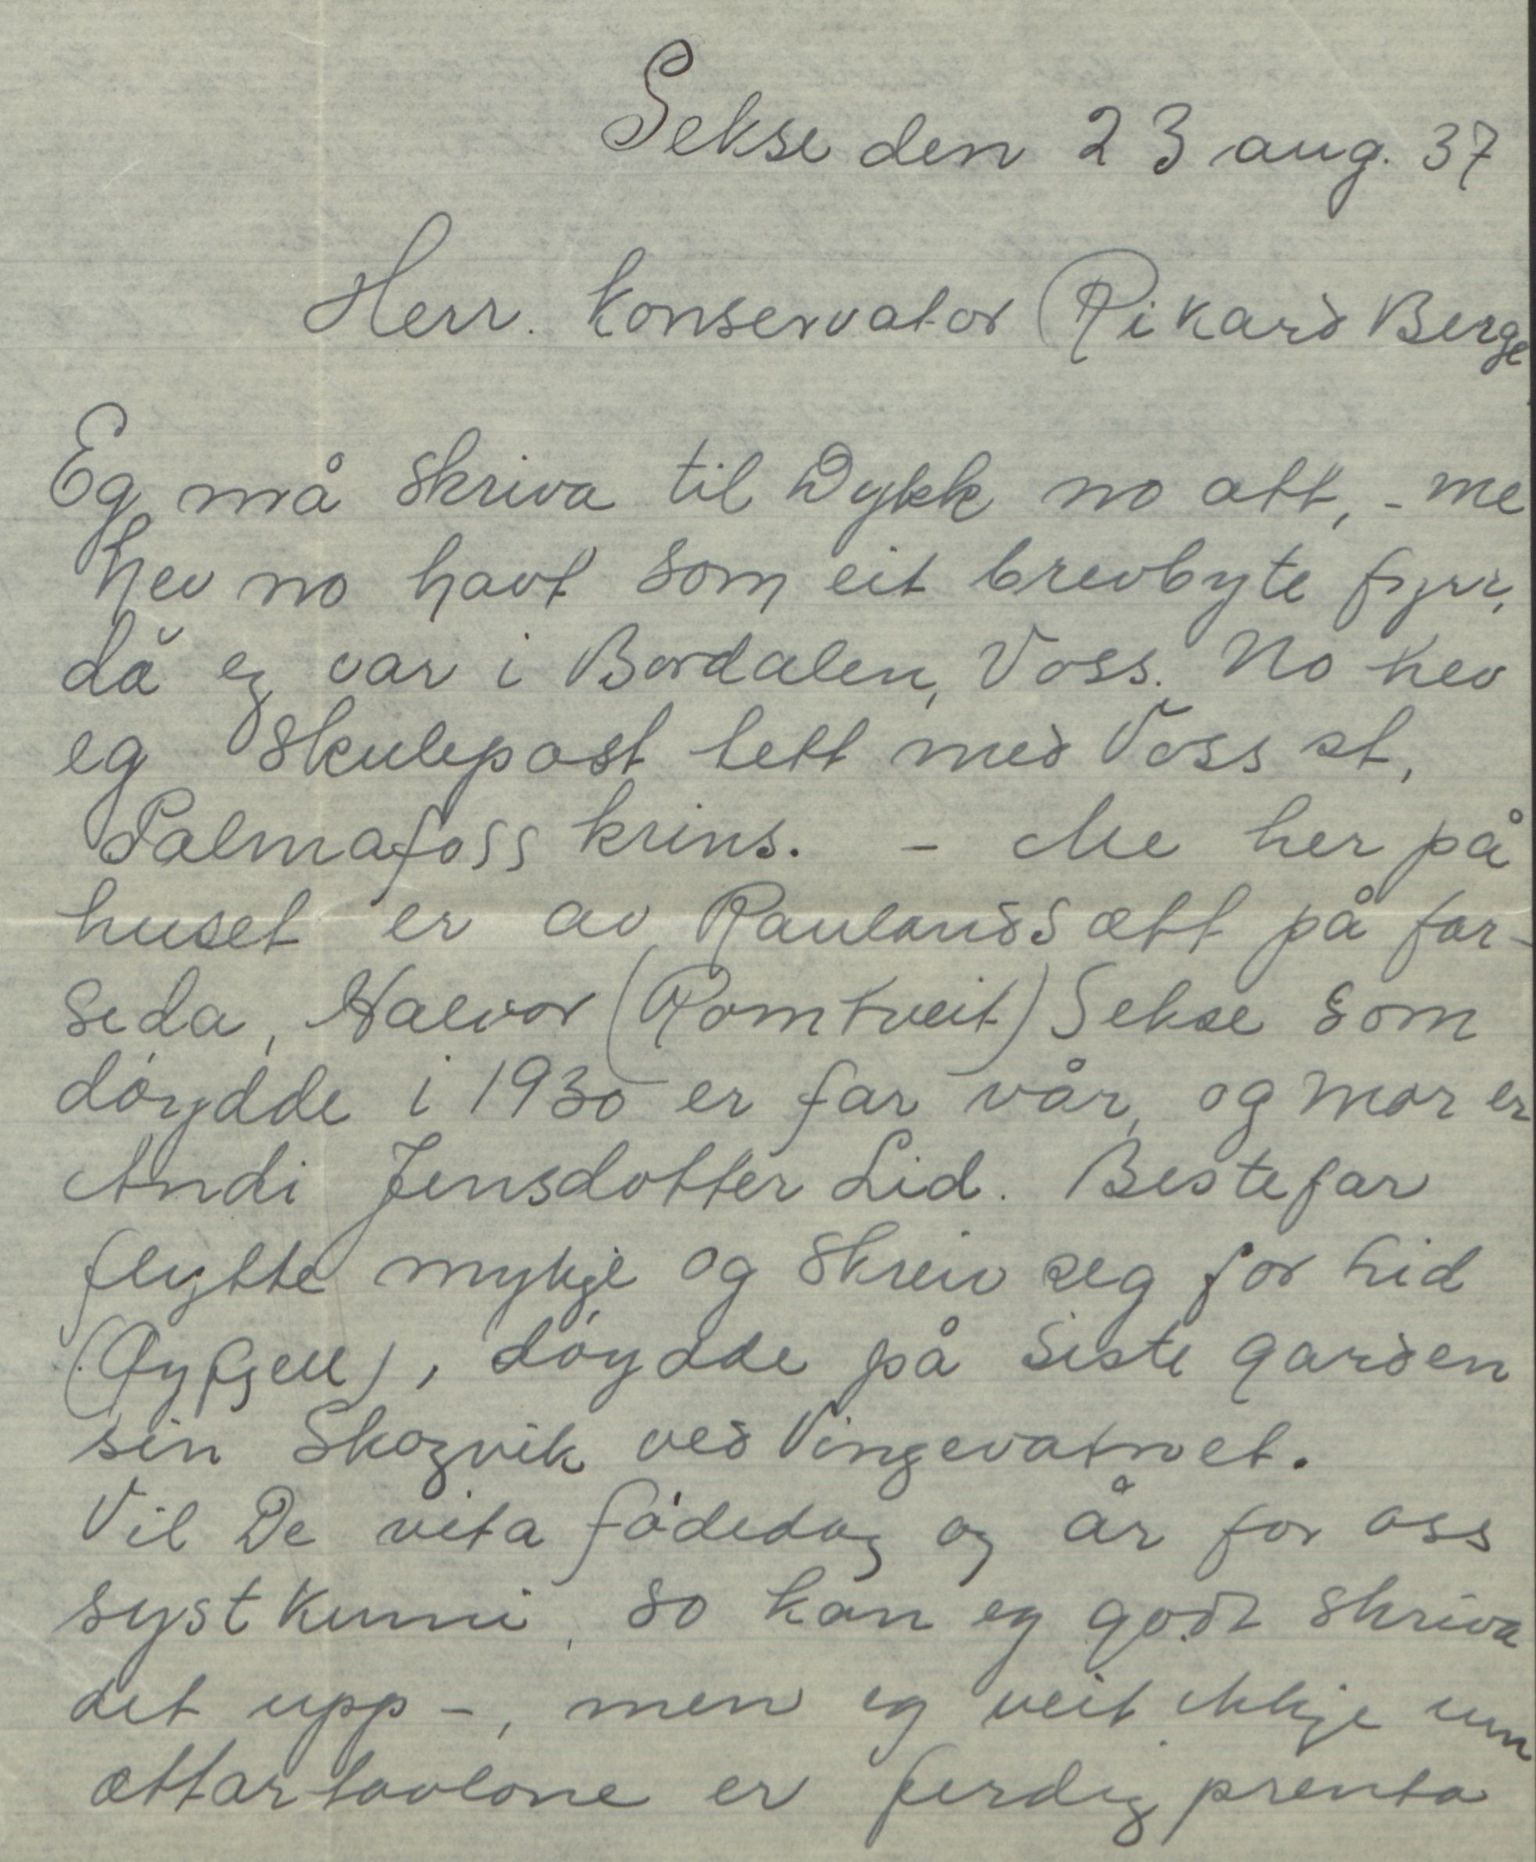 Sekse den 23 aug. 37
Herr. konservator Rikard Berge
Eg må skriva til Dykk no att, - me
hev no havt som eit brevbyte fyrr,
då eg var i Bordalen, Voss. No hev
eg skulepost tett med Voss st,
Palmafoss krins. - Me her på
huset er av Raulandsætt på far-
sida, Halvor (Romtveit) Sekse som
døydde i 1930 er far vår, og mor er
Andi Jensdotter Lid. Bestefar
flytte mykje og skreiv seg for Lid
(Øyfjell), døydde på siste garden
sin Skogvik ved Vingevatnet.
Vil De vita fødedag og år for oss
systkunni, so kan eg godt skriva
det upp -, men eg veit ikkje um
ættartavlone er ferdig prenta